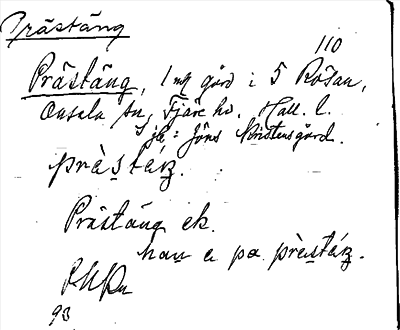 Prästäng
110
Prästäng, 1 mtl gård i 5 Rösan,
Onsala sn, Fjäre hd. Hall. l.
jfr: Jöns Kristensgård.
prὰstáŋ.
Prästäng ek.
han e pa prὲstáŋ.
93